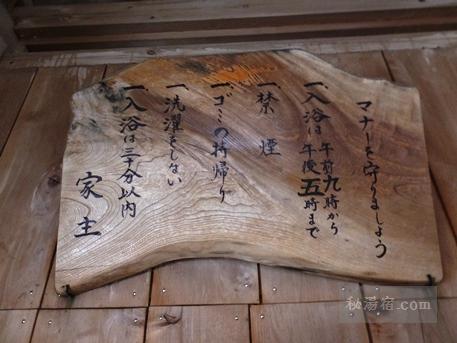 マナーを守りましょう
一、入浴は午前九時から午後五時まで
一、禁煙
一、ゴミの持帰り
一、洗濯をしない
一、入浴は三十分以内
家主
秘湯宿.com